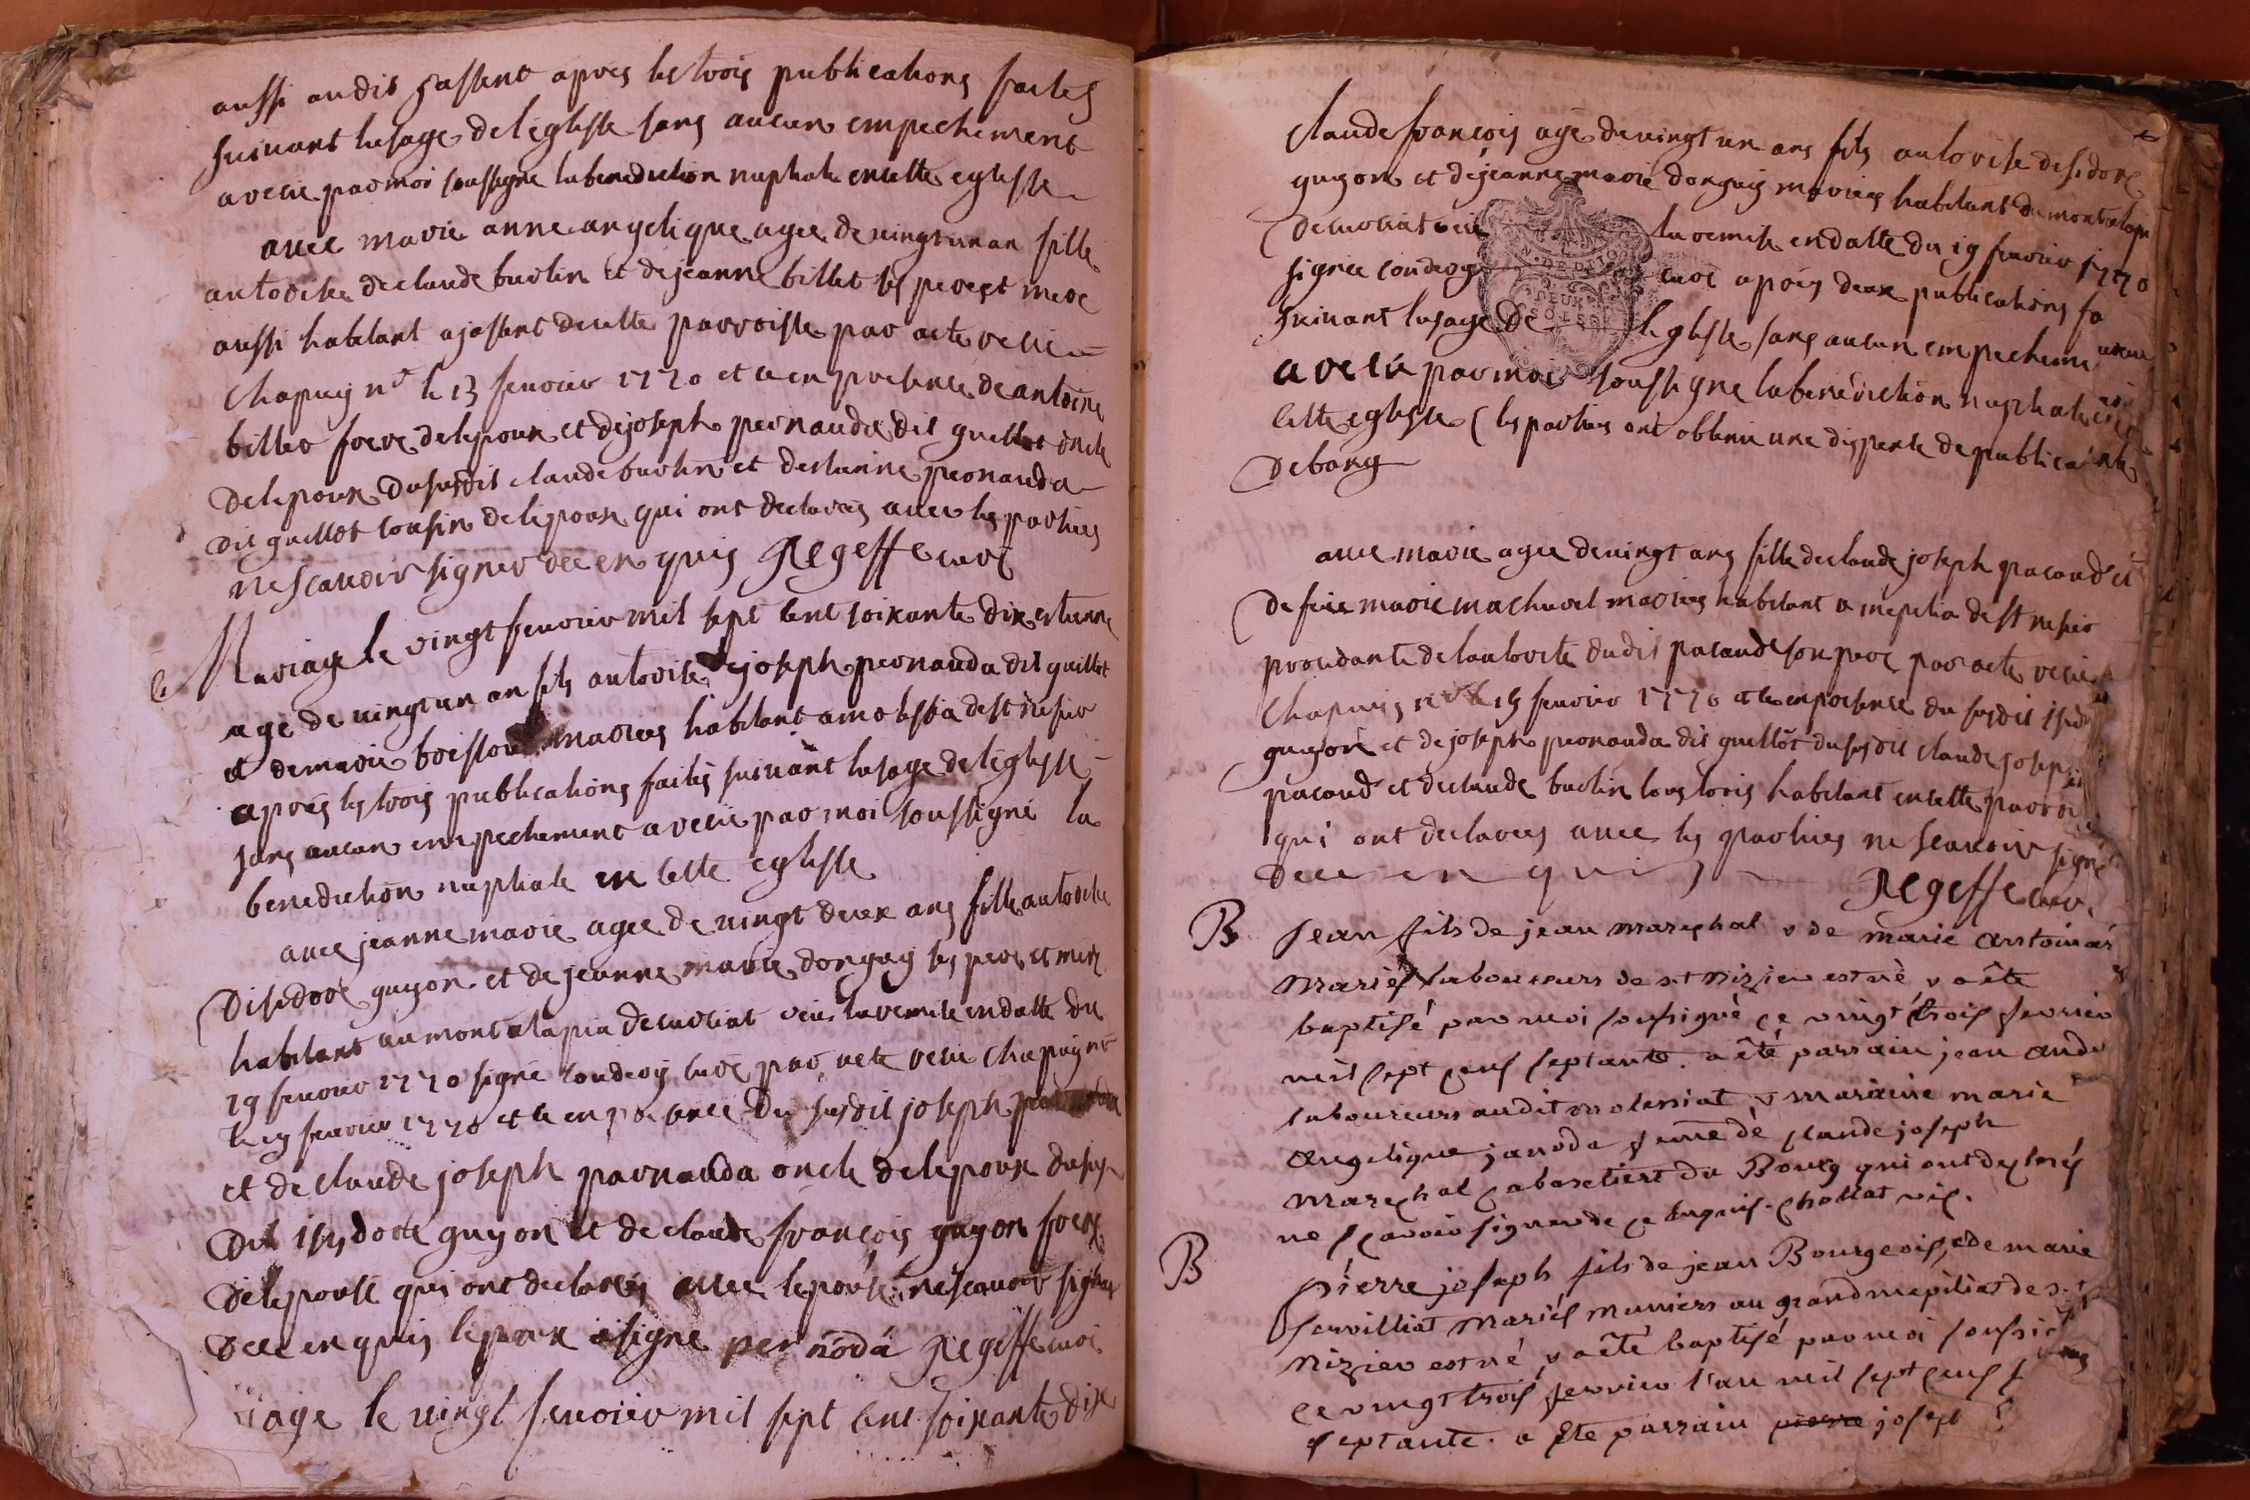 aussi audit jassent apres les trois publications faites
suivant lusage de léglisse sans aucun empechement
a recu par moi soussigné la benediction nuptiale en cette eglisse
avec marie anne angelique agee de vingt un an fille
autorisee de claude burlin et de jeanne billet les pere et mere
aussi habitant a jassent de cette parroisse par acte recu
Chapuy nre le 13 fevrier 1770 et ce en presence de antoine
billet frere de lepoux et de joseph pernauda dit guillot oncle
de lepoux du susdit claude burlin et de pernauda
dit guillot cousin de lépoux qui ont declarés avec les parties
ne scavoir signer de ce enquis Regeffe curé
Mariage le vingt fevrier mil sept cent soixante dix estienne
agé de vingt un an fils autorise de joseph pernauda dit guillot
et de marie boisson mariés habitant a molissia de st nisier
aprés les trois publications faites suivant lusage de léglisse
sans aucun empechement a recu par moi soussigné la
benediction nuptiale en cette eglisse
avec jeanne marie agee de vingt deux ans fille autorisee
disidore guyon et de jeanne marie donguy les pere et mere
habitant au montalapia de curciat veu la remise en datte du
19 fevrier 1770 signé coudroy curé par acte recu Chapuy nre
le 19 fevrier 1770 et ce en presence du susdit joseph pernauda
et de claude joseph parnauda oncle de lepoux du sus
dit isydore guyon et de claude françois guyon frere
de lepouse qui ont declarés avec lepouse ne scavoir signer
de ce enquis lepoux a signé pernoda Regeffe curé
iage le vingt fevrier mil sept cent soixante dix
claude françois agé de vingt un ans fils autorise disidore
guyon et de jeanne marie donguy mariés habitant du montalapia
de curciat veu la remise en datte du 19 fevrier 1770
signée coudroy curé aprés deux publications fa
suivant lusage de leglisse sans aucun empecheme
a recu par moi soussigné la benédiction nuptiale en
cette eglisse (les parties ont obtenu une dispense de publica
de bang
avec marie agee de vingt ans fille de claude joseph pacaud et
de feue marie machurel mariés habitant a mepilia de st nisier
procedante de lautorité dudit pacaud son pere par acte recu
Chapuis nre le 19 fevrier 1770 et ce en presence du susdit isid
guyon et de joseph pernauda dit guillot du susdit claude josep
pacaud et de claude burlin tous trois habitant en cette parroi
qui ont declarés avec les parties ne scavoir signé
de ce enquis Regeffe curé
B Jean fils de jean mareschal & de marie antoinat
mariés laboureurs de st Nizier est né & a été
baptisé par moi soussigné ce vingt trois fevrier
mil sept cens septante. a été parrain jean
laboureurs audit molessiat & maraine marie
angelique janoda femme de claude joseph
mareschal cabaretiers du Bourg qui ont declarés
ne scavoir signer de ce enquis. Chollat vic.
B Pierre joseph fils de jean Bourgeois, & de marie
servilliat mariés muniers au grand mepiliat de s.t
Nizier est né & a été baptisé par moi soussi
ce vingt trois fevrier l'an mil sept cens
septante. a été parrain joseph